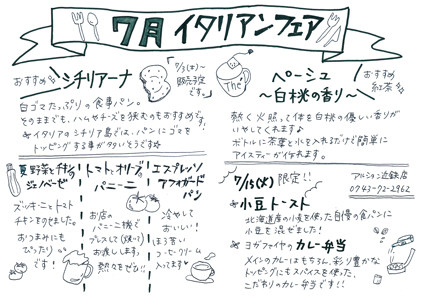 7月 イタリアンフェア
おすすめ
シチリアーナ
7/3(木)〜
販売予定
です。
白ゴマたっぷりの食事パン。
そのままでも、ハムやチーズを挟むのもおすすめです!
イタリアのシチリア島では、パンにゴマを
トッピングする事が多いそうです
The
ペーシュ
〜白桃の香り〜
おすすめ
紅茶
熱く火照った体を白桃の優しい香りが
いやしてくれます♪
ボトルに茶葉と水を入れるだけで簡単に
アイスティーが作れます。
夏野菜とチキンの
ジェノベーゼ
ズッキーニとトマト
チキンをのせました。
おつまみにも
ぴったり
です!
トマトとオリーブの
パニーニ
お店の
パニーニ機で
プレスして(焼いて)
お渡しします。
熱々をぜひ!!
エスプレッソ
アフォガード
パン
冷やして
おいしい!
ほろ苦い
コーヒークリーム
入ってます
7/15(水) 限定!!
アルション近鉄店
0743-72-2962
小豆トースト
北海道産の小麦を使った自慢の食パンに
小豆を混ぜました!
ヨガファイヤのカレー弁当
メインのカレーはもちろん、彩り豊かな
トッピングにもスパイスを使った、
こだわりのカレー弁当です!!